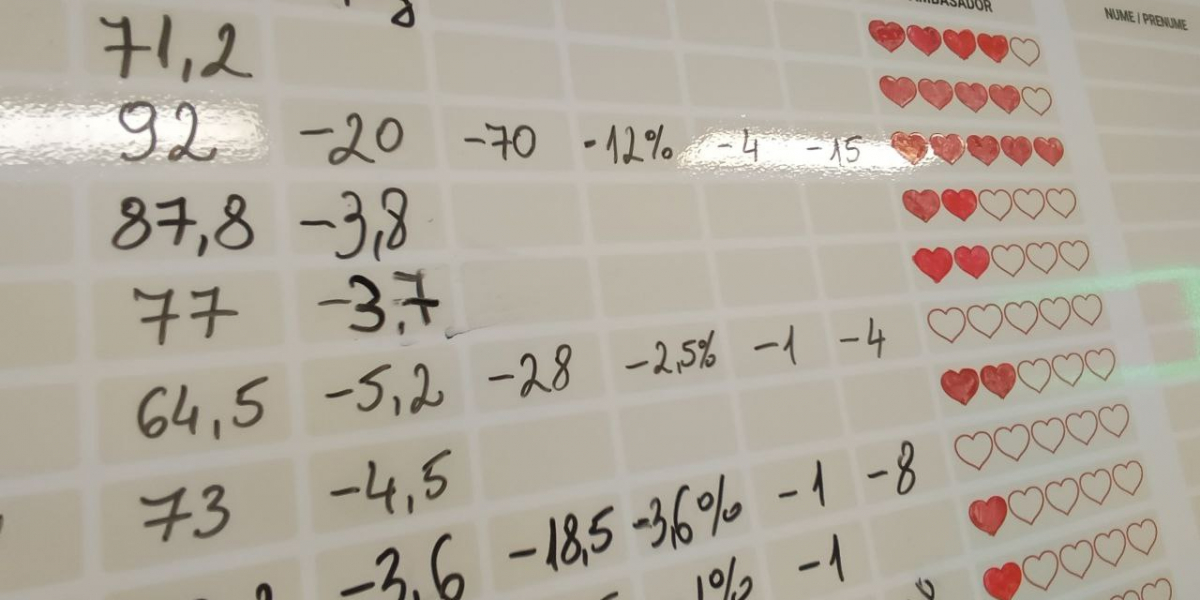 AMBASADOR
NUME / PRENUME
71,2
92 -20 -70 -12% -4 -15
87,8 -3,8
77 -3,7
64,5 -5,2 -28 -2,5% -1 -4
73 -4,5
-3,6 -18,5 -3,6% -1 -8
1% -1